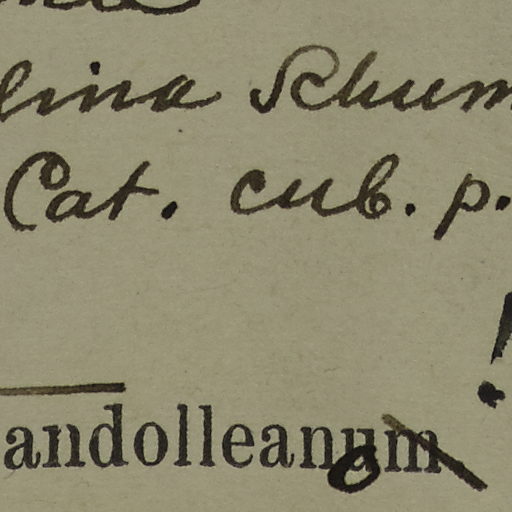 lina Schum
Cat. cub. p.
!
andolleano